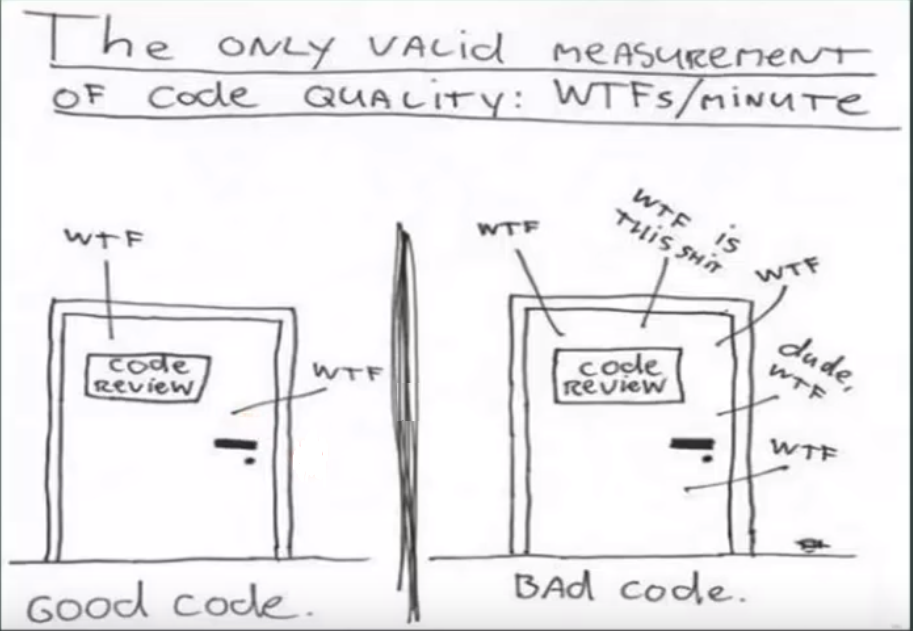 The ONLY VALID MEASUREMENT
OF Code QUALITY: WTFs/MINUTE
WTF
code
REVIEW
WTF
GOOD code.
WTF
WTF is
THIS SHIT
WTF
code
REVIEW
dude,
WTF
WTF
BAD code.